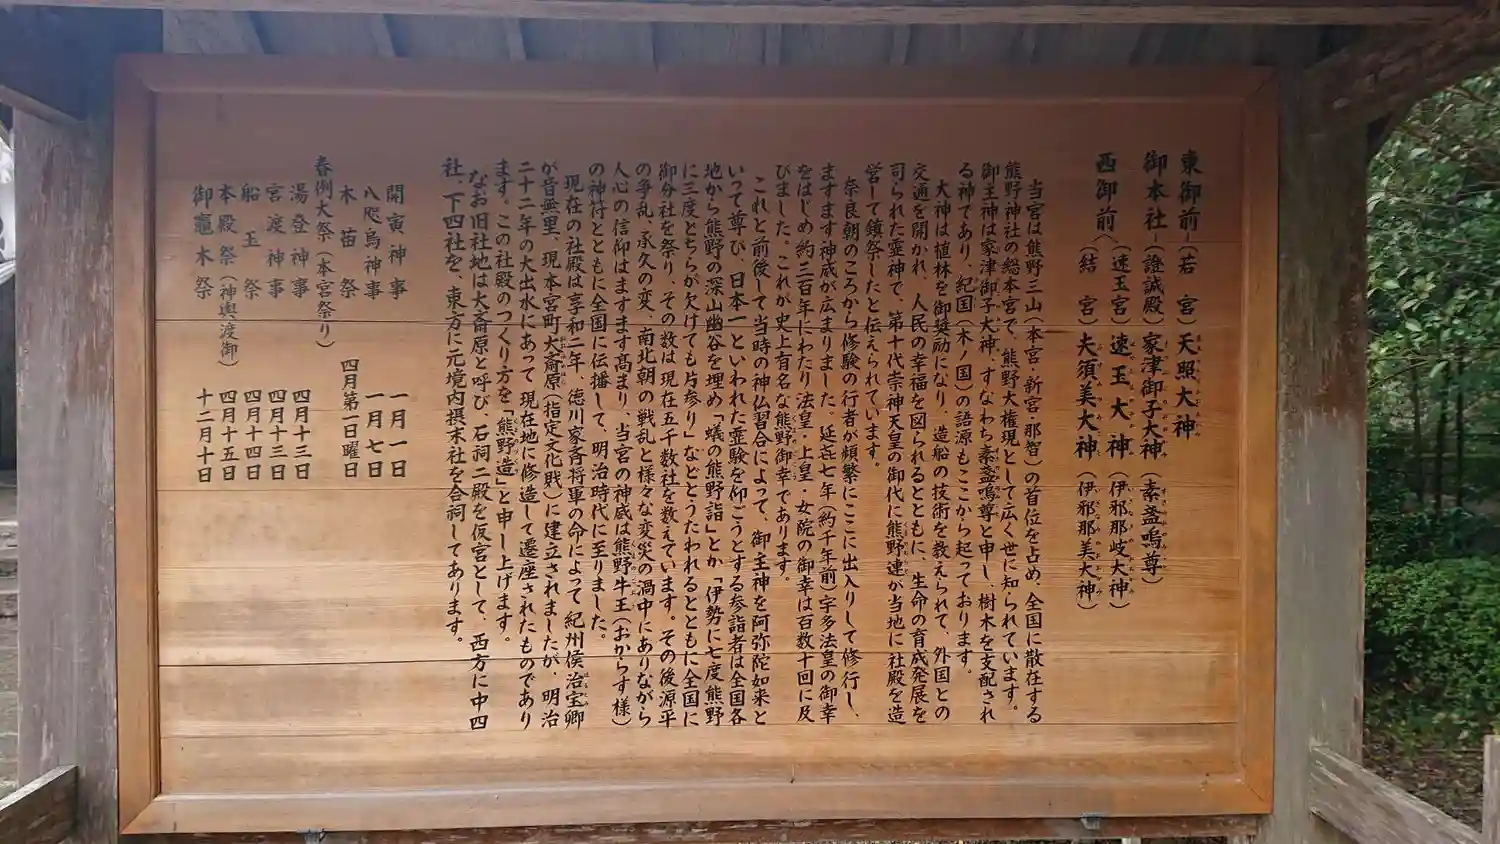 東御前―(若　宮)天照大神
御本社―(證誠殿)家津御子大神(素盞嗚尊)
西御前(速玉宮)速玉大神(伊邪那岐大神)
(結　宮)夫須美大神(伊邪那美大神)
当宮は熊野三山(本宮・新宮・那智)の首位を占め、全国に散在する
熊野神社の総本宮で、熊野大権現として広く世に知られています。
御主神は家津御子大神、すなわち素盞嗚尊と申し、樹木を支配され
る神であり、紀国(木ノ国)の語源もここから起っております。
大神は植林を御奨励になり、造船の技術を教えられて、外国との
交通を開かれ、人民の幸福を図られるとともに、生命の育成発展を
司られた霊神で、第十代崇神天皇の御代に熊野連が当地に社殿を造
営して鎮祭したと伝えられています。
奈良朝のころから修験の行者が頻繁にここに出入りして修行し、
ますます神威が広まりました。延喜七年(約千年前)宇多法皇の御幸
をはじめ約三百年にわたり法皇・上皇・女院の御幸は百数十回に及
びました。これが史上有名な熊野御幸であります。
これと前後して当時の神仏習合によって、御主神を阿弥陀如来と
いって尊び、日本一といわれた霊験を仰ごうとする参詣者は全国各
地から熊野の深山幽谷を埋め「蟻の熊野詣」とか「伊勢に七度熊野
に三度とちらが欠けても片参り」などとうたわれるとともに全国に
御分社を祭り、その数は現在五千数社を数えています。その後源平
の争乱、承久の変、南北朝の戦乱と様々な変災の渦中にありながら
人心の信仰はますます高まり、当宮の神威は熊野牛王(おからす様)
の神符とともに全国に伝播して、明治時代に至りました。
現在の社殿は享和二年、徳川家斉将軍の命によって紀州侯治宝卿
が音無里、現本宮町大斎原(指定文化財)に建立されましたが、明治
二十二年の大出水にあって現在地に修造して遷座されたものであり
ます。この社殿のつくり方を「熊野造」と申し上げます。
なお旧社地は大斎原と呼び、石祠二殿を仮宮として、西方に中四
社、下四社を、東方に元境内摂末社を合祠してあります。
開寅神事　一月一日
八咫烏神事　一月七日
木苗祭　四月第二日曜日
春例大祭(本宮祭り)
湯登神事　四月十三日
宮渡神事　四月十三日
船玉祭　四月十四日
本殿祭(神輿渡御)　四月十五日
御竈木祭　十二月十日